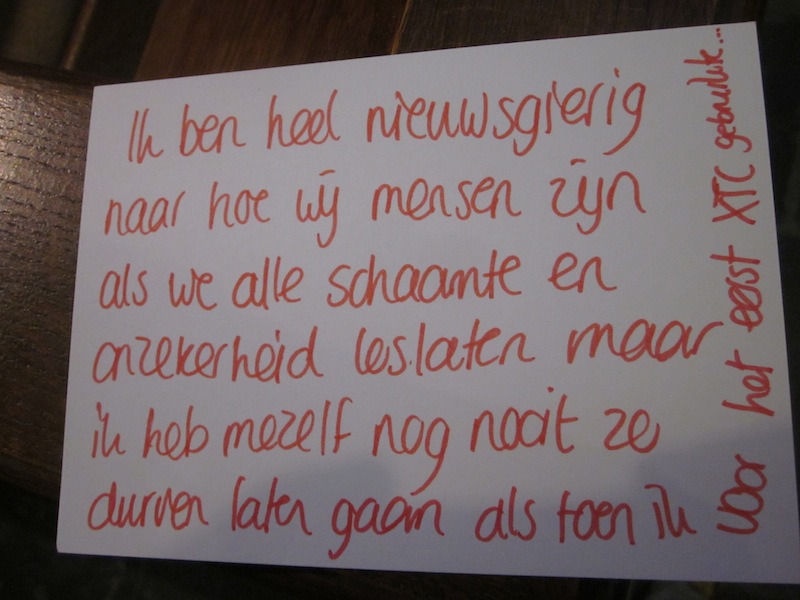 Ik ben heel nieuwsgierig
naar hoe wij mensen zijn
als we alle schaamte en
onzekerheid loslaten maar
ik heb mezelf nog nooit zo
durven laten gaan als toen ik
voor het eerst XTC gebruik...